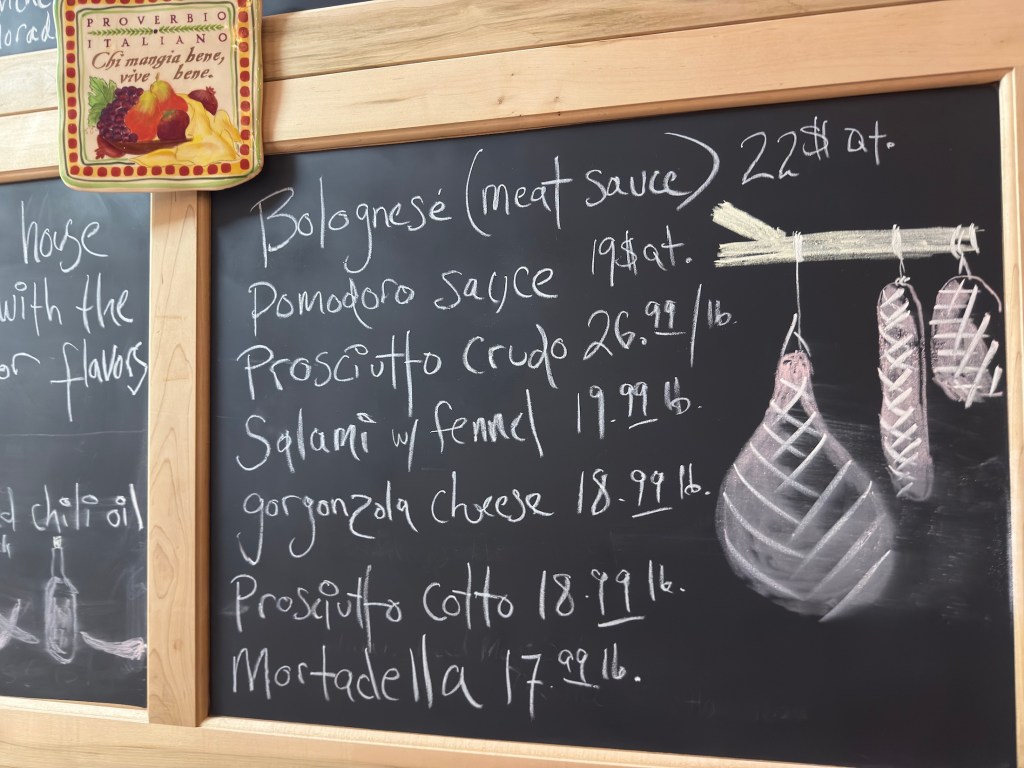 PROVERBIO
ITALIANO
Chi mangia bene,
vive bene.
house
with the
or flavors
chili oil
Bolognesé (meat sauce) 22$ qt.
Pomodoro sauce 19$ qt.
Prosciutto crudo 26.99/lb.
Salami w/ fennel 19.99 lb.
gorgonzola cheese 18.99 lb.
Prosciutto cotto 18.99 lb.
Mortadella 17.99 lb.